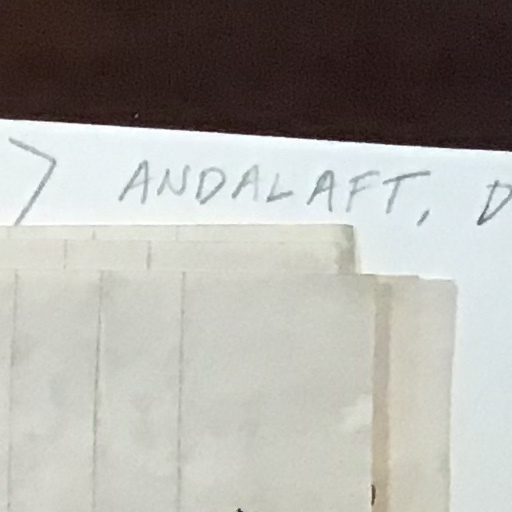 ANDALAFT, D